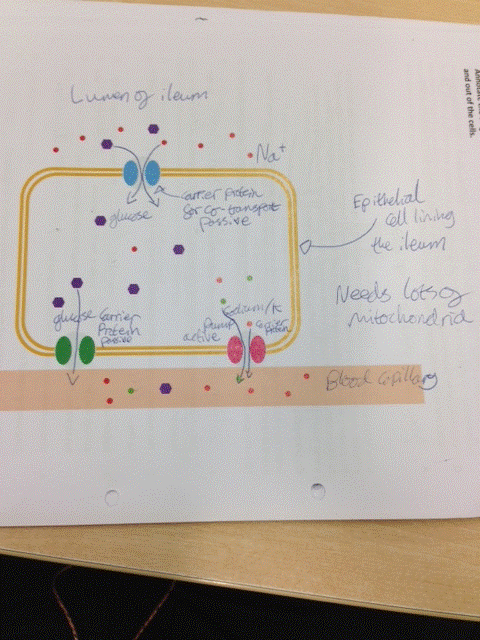 and out of the cells.
Lumen of ileum
Na+
carrier protein
for co-transport
passive
glucose
Epithelial
cell lining
the ileum
Needs lots of
mitochondria
glucose carrier
Protein
passive
Sodium/K
Pump carrier
active protein
Blood capillary